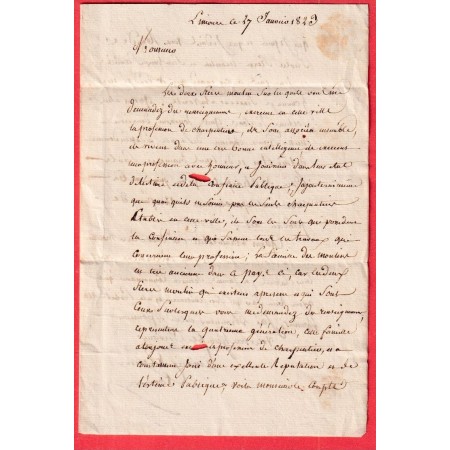 Limoux le 27 Janvier 1823
Monsieur
Les deux frère moulin sur les quels vous me
demandez des renseignemens, exercent en cette ville
la profession de charpentiers, ils sont associés ensemble,
ils vivent dans une très bonne intelligence ils exercent
leur profession avec honneur, et jouissent dans leur état
d'estime et de la confiance publique;
que quoi qu'ils ne soient pas les seuls charpentiers
Etablis en cette ville, ils sont les seuls qui possèdent
la confiance et qui fassent tous les travaux que
concernent leur profession; la famille des moulins
est très ancienne dans ce pays ci, car les deux
frère moulin qui existent apresent et qui sont
ceux sur lesquels vous me demandez des renseignemens,
représentent la quatrième génération, cette famille
a toujours exercé la profession de charpentier, et a
constamment joui d'une excellente Reputation et de
l'estime publique, voila monsieur le compte